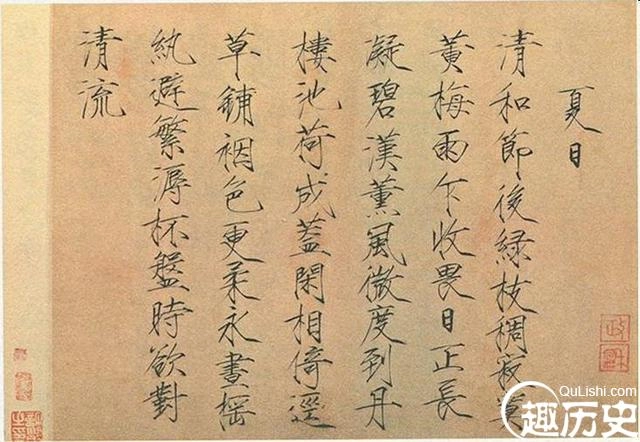 夏日
清和節後綠枝稠寂寞
黃梅雨乍收畏日正長
凝碧漢薰風微度到丹
樓池荷成蓋閑相倚逕
草鋪裀色更柔永晝搖
紈避繁溽杯盤時欲對
清流
政和
QuLishi.com
趣历史